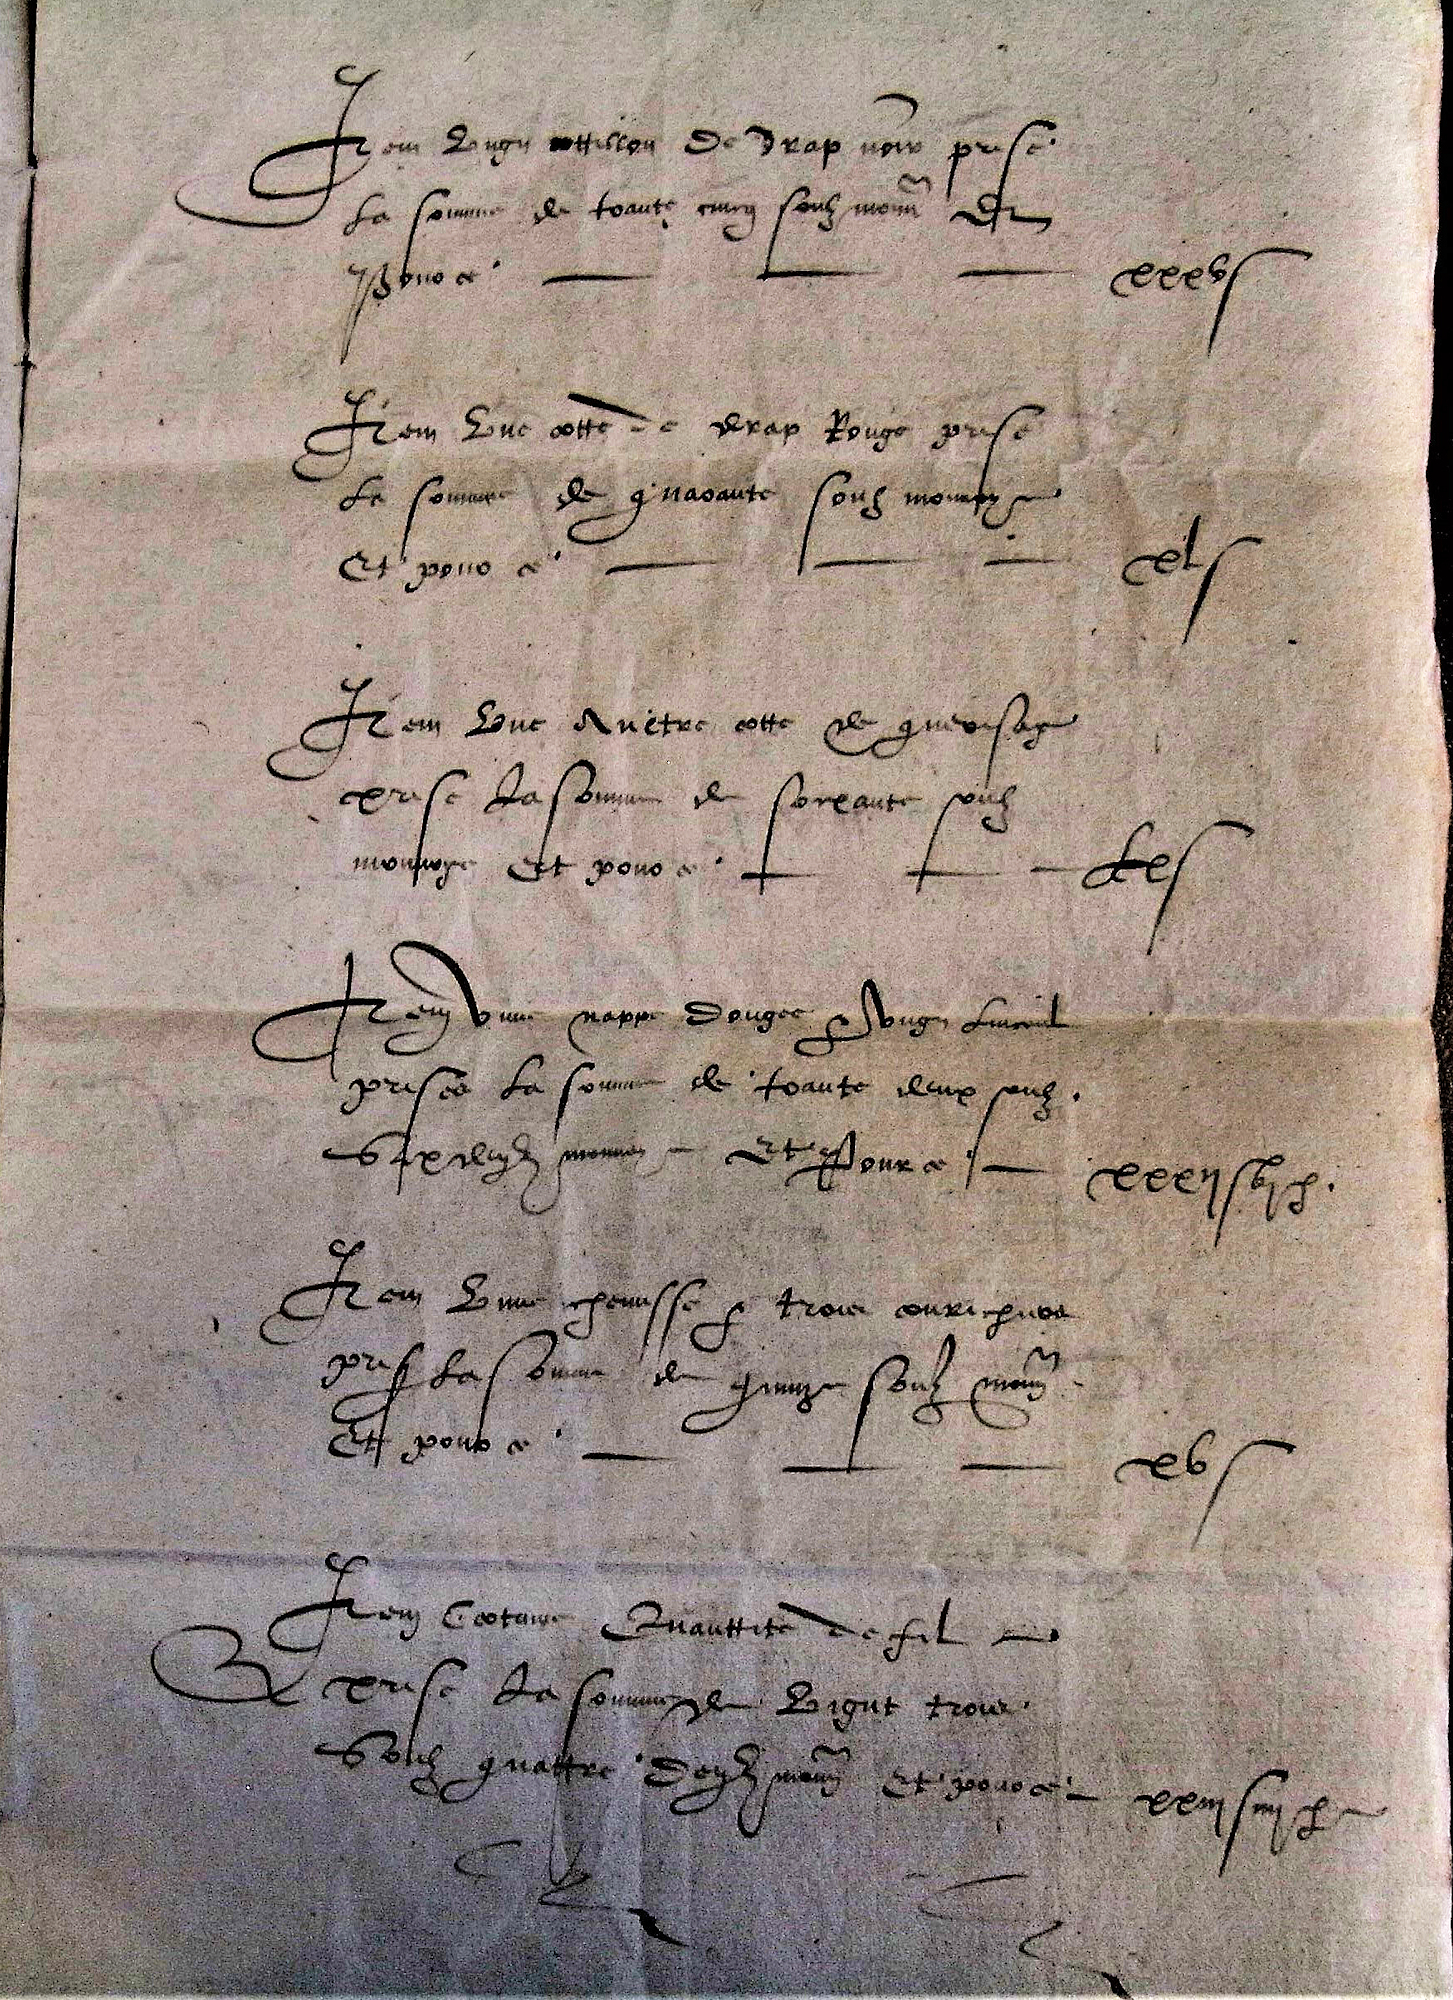 Item Ungn cottillon de drap noir prise
la somme de trante cincq soulz monn et
Pour ce xxxv s
Item Une cotte de drap Rouge prise
la somme de quarante soulz monnoye
Et pour ce xl s
Item Une Aultre cotte de
prise la somme de soixante soulz
monnoye Et pour ce lx s
Item Vnne nappe dougee & Vngn linceul
prisés la somme de trante deux soulz
Six deniers monnoye Et Pour ce xxxij s vj d
Item Unne chemisse & troies
pris la somme de quinze soulz monn
Et pour ce xv s
Item Certaine Quanttité de fil
prise la somme de Vignt troies
Soulz quattre deniers monn Et pour ce xxiij s iiij d